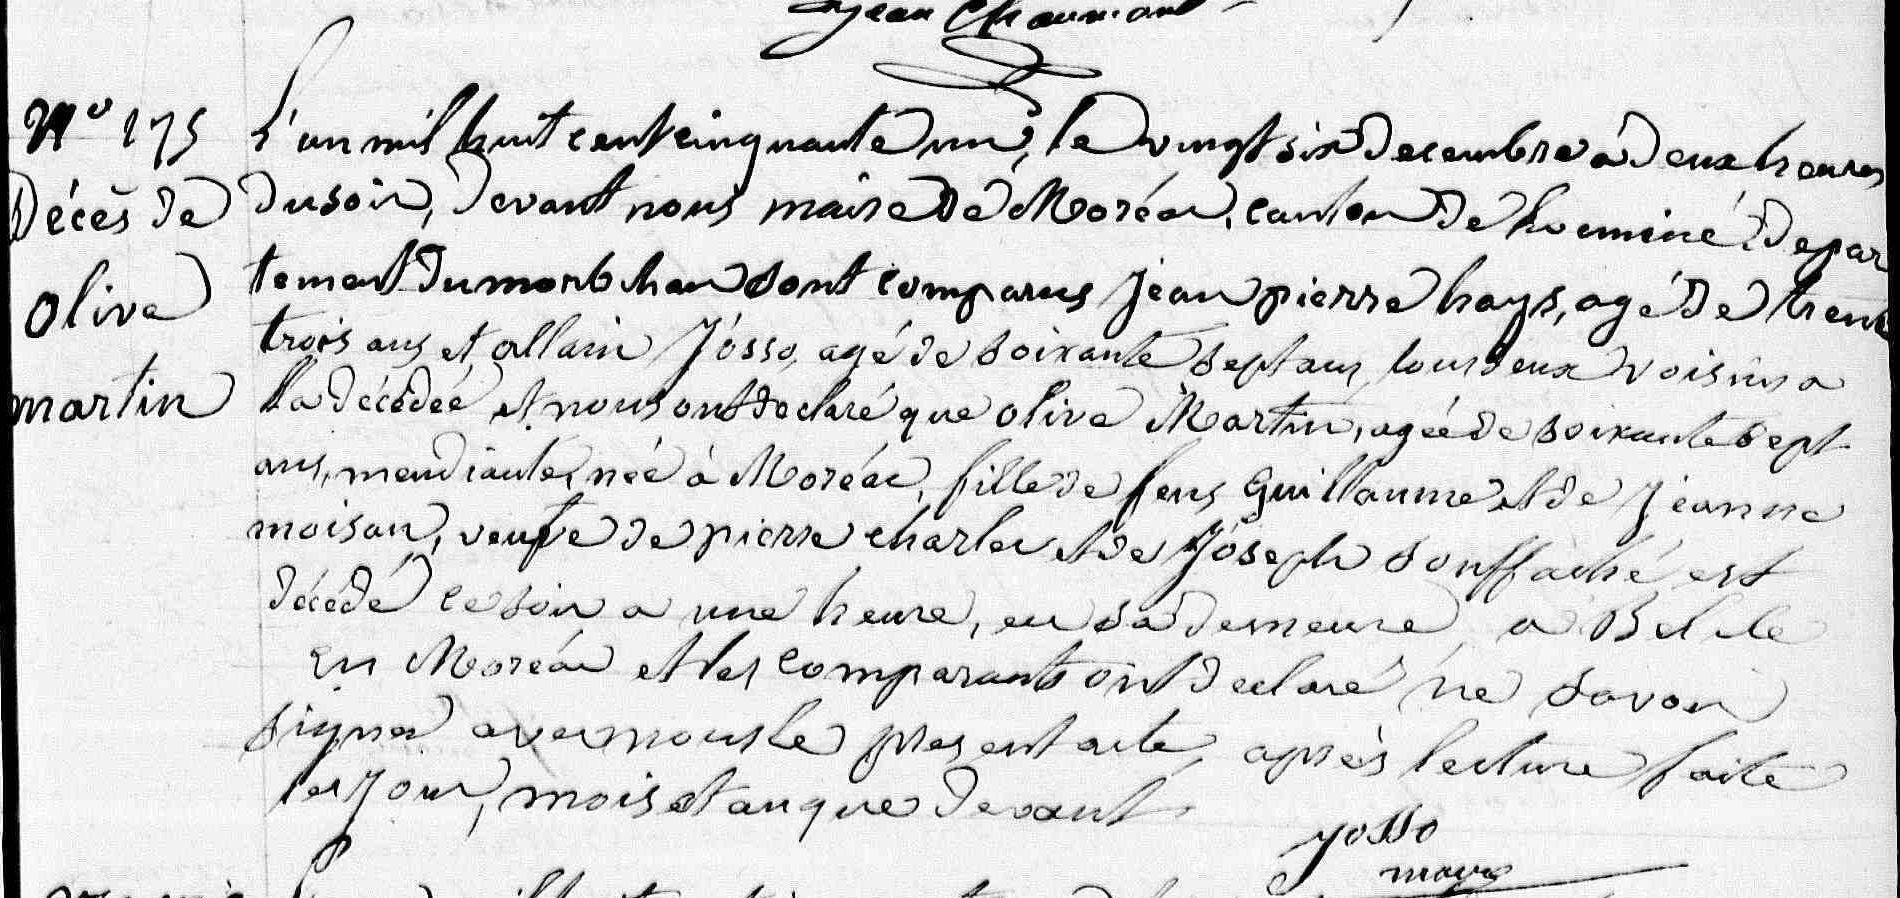 Jean Chaumont
N° 175
Décès de
olive
martin
L'an mil huit cent cinquante un, le vingt six decembre à deux heures
du soir, devant nous maire de Moréac, canton de Locminé depar
tement du morbihan sont comparus jean pierre hays, agé de trente
trois ans et allain Josso, agé de soixante sept ans, tous deux voisins a
la décédée et nous ont declaré que olive Martin, agée de soixante sept
ans, mendiante, née à Moréac, fille de feus Guillaume et de Jeanne
moisan, veufe de pierre charles et de Joseph souffaché est
décédé ce soir a une heure, en sa demeure, a
en Moréac et les comparants ont declaré ne savoir
signer avec nous le present acte, après lecture faite
les jour, mois et an que devant
Josso
maire